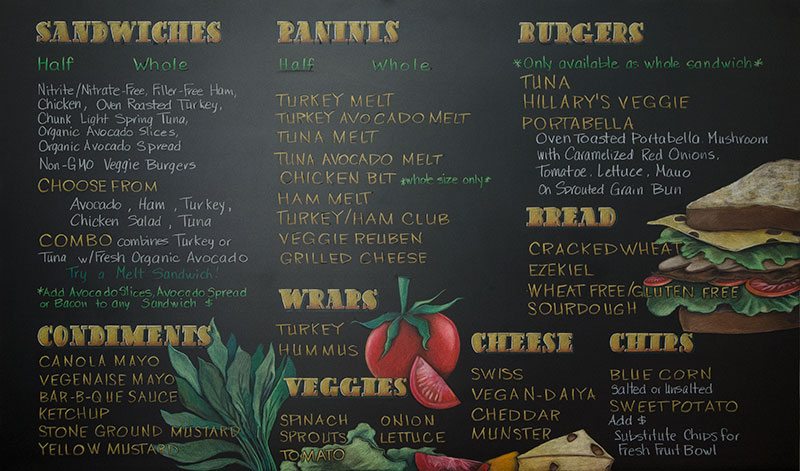 SANDWICHES
Half Whole
Nitrite/Nitrate-Free, Filler-Free Ham,
Chicken, Oven Roasted Turkey,
Chunk Light Spring Tuna,
Organic Avocado Slices,
Organic Avocado Spread
Non-GMO Veggie Burgers
CHOOSE FROM
Avocado, Ham, Turkey,
Chicken Salad, Tuna
COMBO combines Turkey or
Tuna w/Fresh Organic Avocado
Try a Melt Sandwich!
*Add Avocado Slices, Avocado Spread
or Bacon to any Sandwich $
CONDIMENTS
CANOLA MAYO
VEGENAISE MAYO
BAR-B-QUE SAUCE
KETCHUP
STONE GROUND MUSTARD
YELLOW MUSTARD
PANINIS
Half Whole
TURKEY MELT
TURKEY AVOCADO MELT
TUNA MELT
TUNA AVOCADO MELT
CHICKEN BLT *whole size only*
HAM MELT
TURKEY/HAM CLUB
VEGGIE REUBEN
GRILLED CHEESE
WRAPS
TURKEY
HUMMUS
VEGGIES
SPINACH ONION
SPROUTS LETTUCE
TOMATO
BURGERS
*Only available as whole sandwich*
TUNA
HILLARY'S VEGGIE
PORTABELLA
Oven Toasted Portabella Mushroom
with Caramelized Red Onions,
Tomatoe, Lettuce, Mayo
On Sprouted Grain Bun
BREAD
CRACKED WHEAT
EZEKIEL
WHEAT FREE/GLUTEN FREE
SOURDOUGH
CHEESE
SWISS
VEGAN-DAIYA
CHEDDAR
MUNSTER
CHIPS
BLUE CORN
Salted or Unsalted
SWEET POTATO
Add $
Substitute Chips for
Fresh Fruit Bowl